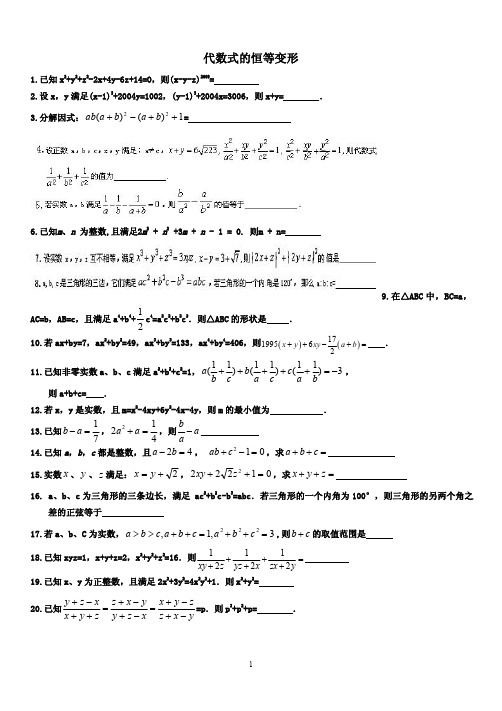 代数式的恒等变形
1.已知x²+y²+z²-2x+4y-6z+14=0，则(x-y-z)²⁰⁰⁸=
2.设x，y满足(x-1)³+2004y=1002，(y-1)³+2004x=3006，则x+y=______．
3.分解因式：ab(a+b)²-(a+b)²+1=
4.设正数a、b、c、x、y满足：a≠c，x+y=6223, x²/a²+xy/b²+y²/c²=1, x²/c²+xy/b²+y²/a²=1,则代数式
1/a²+1/b²+1/c²的值为______．
5.若实数a、b满足1/a-1/b-1/(a+b)=0，则b/a²-a/b²的值等于______．
6.已知m、n 为整数,且满足2m² + n² +3m + n - 1 = 0. 则m + n=
7.设实数x，y，z互不相等，满足x³+y³+z³=3xyz, x-y=3+√7,则|2x+z|²+|2y+z|²的值是
8.a,b,c是三角形的三边，它们满足ac²+b²c-b³=abc，若三角形的一个内角是120°，那么a:b:c=
9.在△ABC中，BC=a，
AC=b，AB=c，且满足a⁴+b⁴+1/2c⁴=a²c²+b²c²．则△ABC的形状是 ．
10.若ax+by=7，ax²+by²=49，ax³+by³=133，ax⁴+by⁴=406，则1995(x+y)+6xy-17/2(a+b)= ．
11.已知非零实数a、b、c满足a²+b²+c²=1，a(1/b+1/c)+b(1/a+1/c)+c(1/a+1/b)=-3，
则a+b+c=____．
12.若x，y是实数，且m=x²-4xy+6y²-4x-4y，则m的最小值为 ．
13.已知b-a=1/7，2a²+a=1/4，则b/a-a
14.已知a，b，c都是整数，且a-2b=4， ab+c²-1=0，求a+b+c=
15.实数x、y、z满足：x=y+√2，2xy+2√2z²+1=0，求x+y+z=
16. a、b、c为三角形的三条边长，满足 ac²+b²c-b³=abc．若三角形的一个内角为100°，则三角形的另两个角之
差的正弦等于
17.若a、b、C为实数，a>b>c,a+b+c=1,a²+b²+c²=3,则b+c的取值范围是
18.已知xyz=1，x+y+z=2，x²+y²+z²=16．则1/(xy+2z)+1/(yz+2x)+1/(zx+2y)=
19.已知x、y为正整数，且满足2x²+3y²=4x²y²+1．则x²+y²=
20.已知(y+z-x)/(x+y+z)=(z+x-y)/(y+z-x)=(x+y-z)/(z+x-y)=p．则p³+p²+p=______．
1